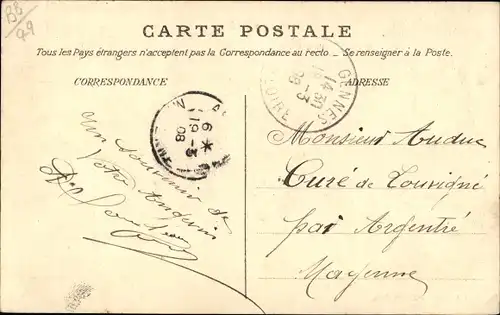 BB
99
CARTE POSTALE
Tous les Pays étrangers n'acceptent pas la Correspondance au recto _ Se renseigner à la Poste.
CORRESPONDANCE
ADRESSE
GENNES
14 30
19-3
08
LOIRE
6
19-3
08
Un Souvenir de
Votre Angevin
Monsieur Auduc
Curé de Louvigné
par Argentré
Mayenne